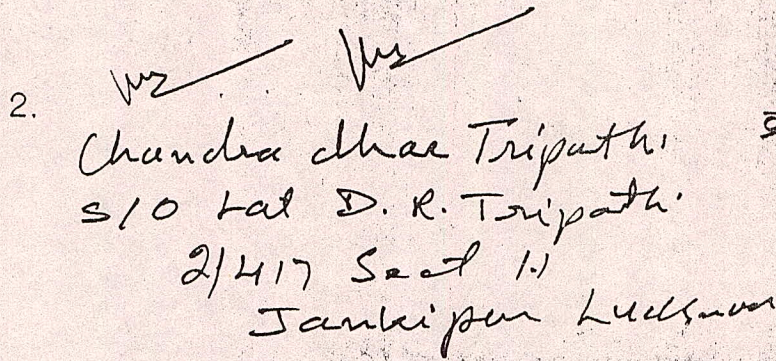 2.
Chandra dhar Tripathi
S/O Lat D. R. Tripathi
2/417 Sect
Jankipur Lucknow